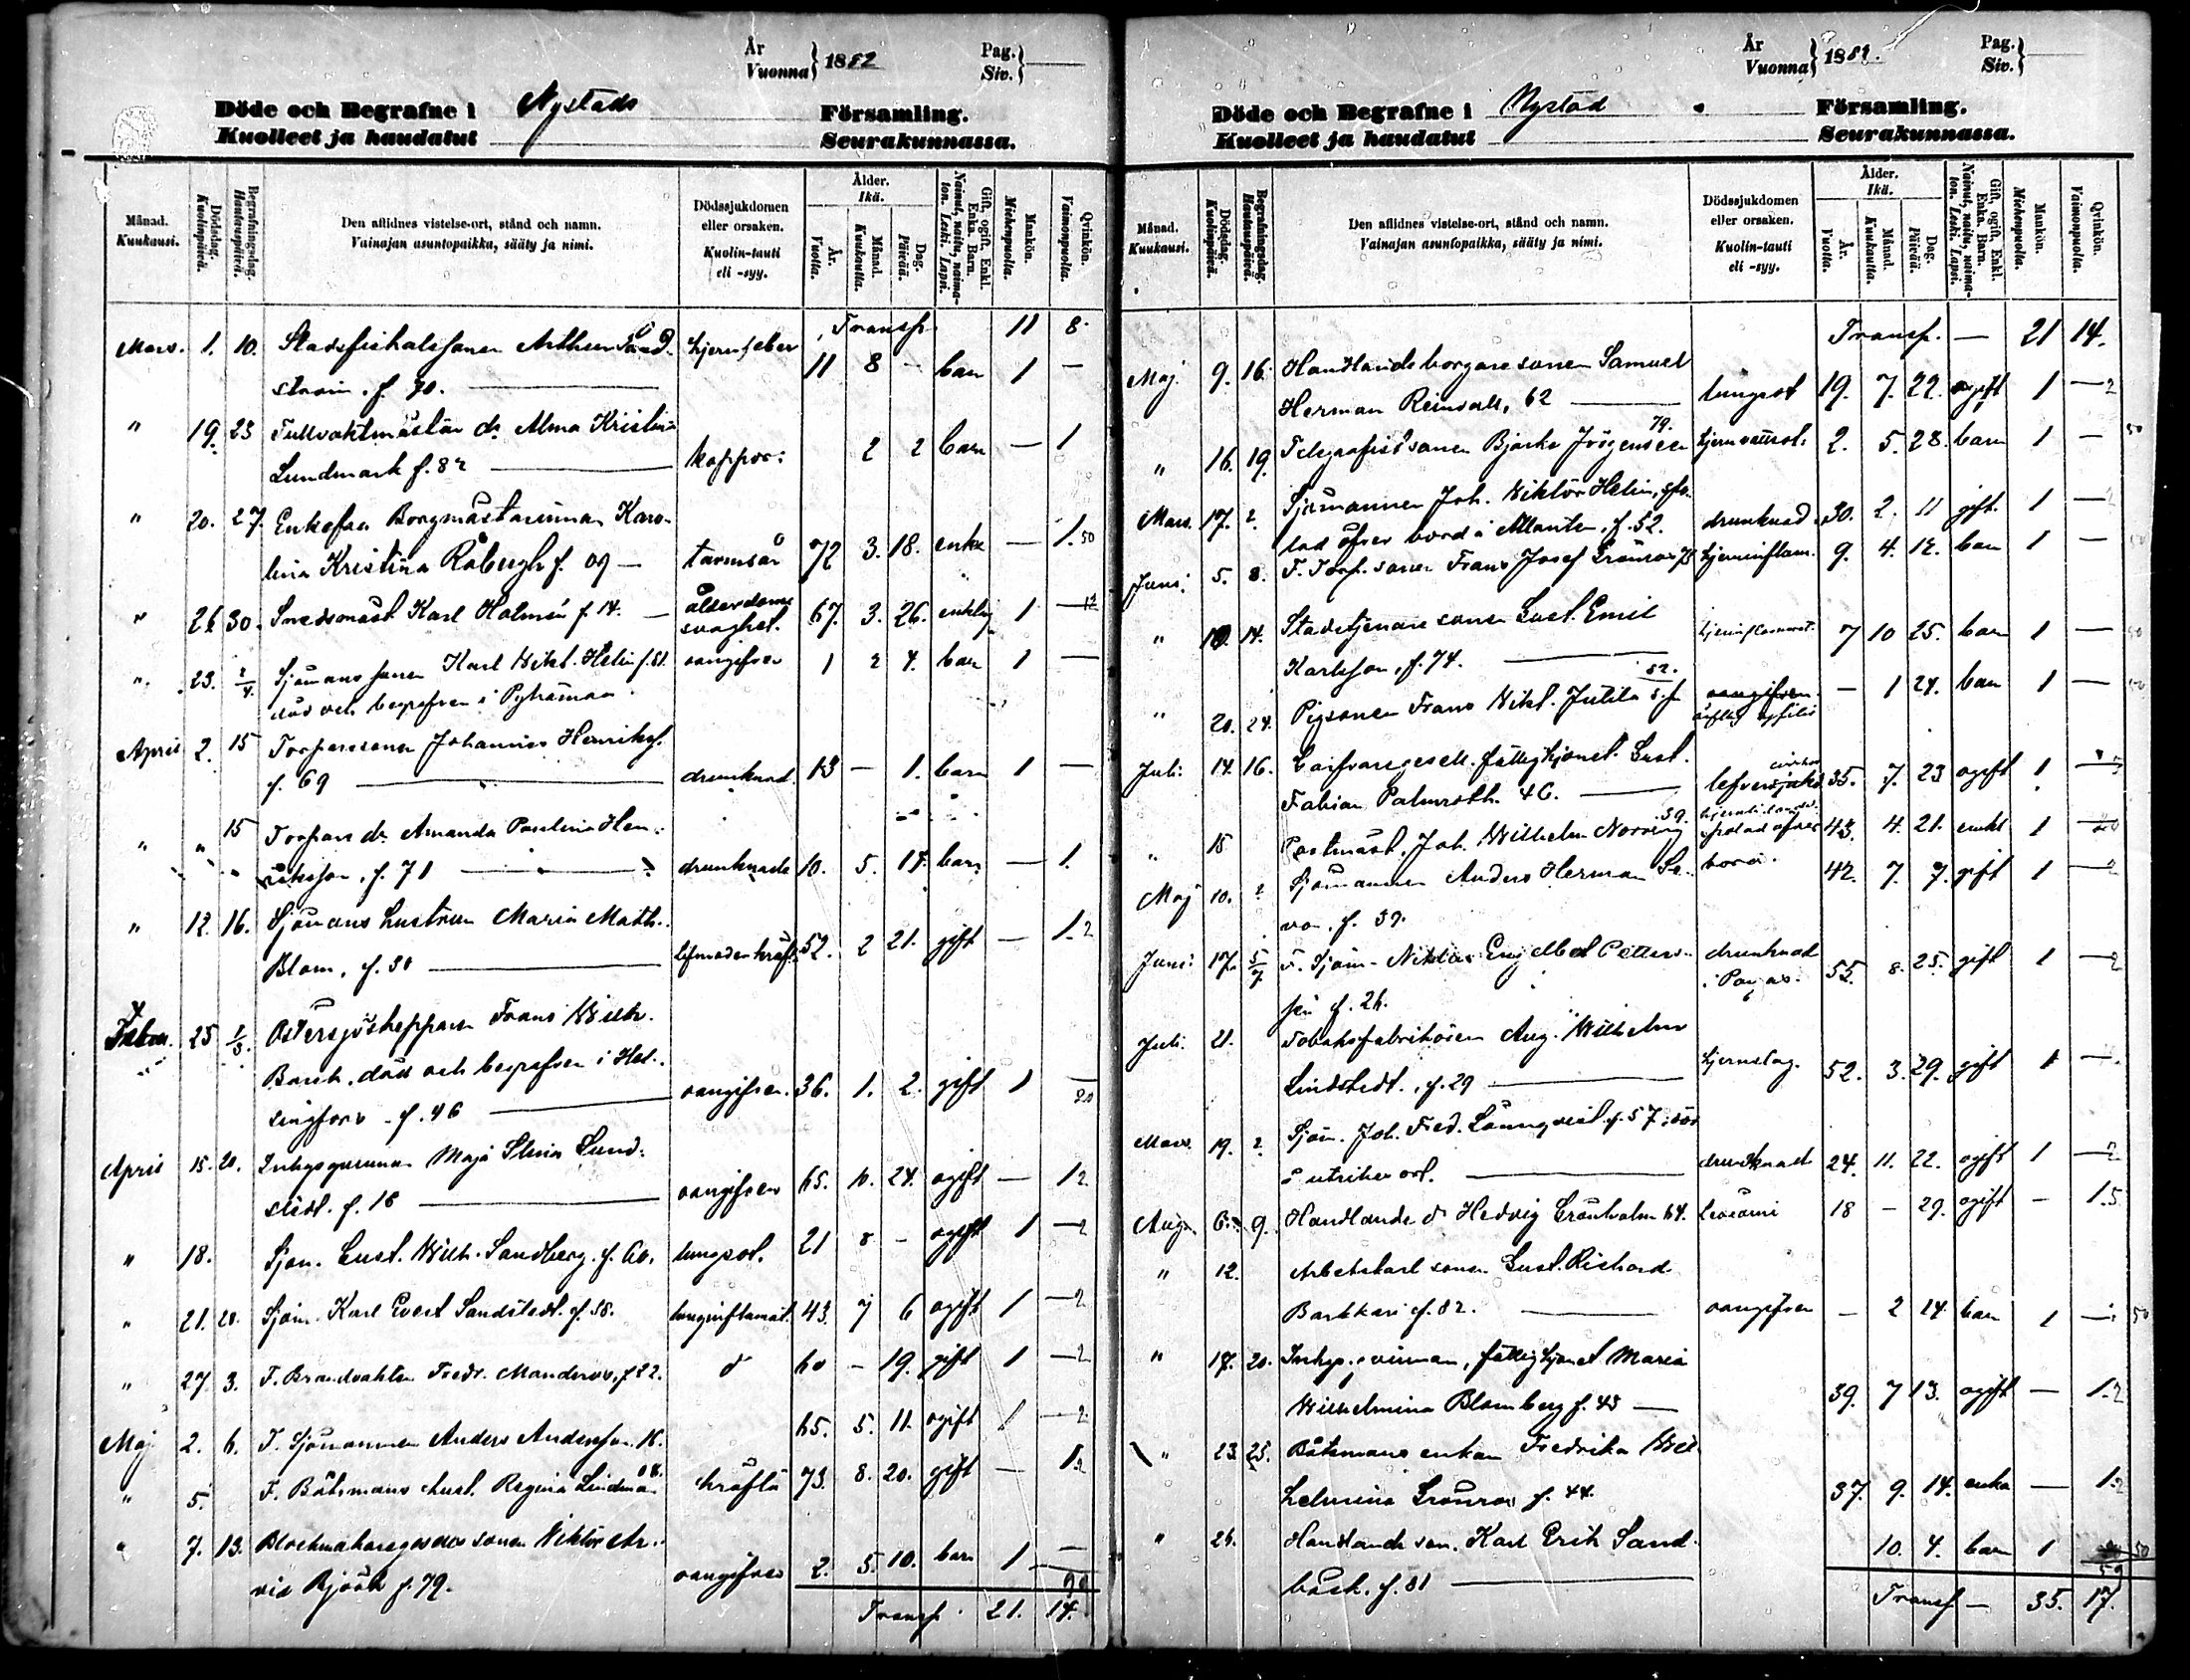 År
Vuonna } 1882
Pag.
Siv. }
Döde och Begrafne i Nystads Församling.
Kuolleet ja haudatut Seurakunnassa.
Månad. Kuukausi.
Dödsdag. Kuolinpäivä.
Begrafningsdag. Hautauspäivä.
Den aflidnes vistelse-ort, stånd och namn.
Vainajan asuntopaikka, sääty ja nimi.
Dödssjukdomen eller orsaken.
Kuolin-tauti eli -syy.
Ålder. Ikä.
År. Vuotta.
Månad. Kuukautta.
Dag. Päivää.
Gift, ogift, Enkl. Enka. Barn.
Nainut, naitu, naimaton. Leski. Lapsi.
Mankön. Miehenpuolta.
Qvinkön. Vaimonpuolta.
Transp. 11 8
Mars. 1. 10. Stadsfiskalssonen Arthur Sand- hjernfeber
ström. f. 70. 11 8 - barn 1 -
" 19. 23 Tullvaktmästar dr Alma Kristina
Lundmark f. 82 koppor: 2 2 barn - 1
" 20. 27. Enkefru Borgmästarinnan Karo-
lina Kristina Råbergh f. 09 - tarmsår 72 3. 18. enka - 1. 50
" 26 30. Smedsmäst. Karl Holmén f. 14. - ålderdoms svaghet. 67. 3. 26. enkling 1 -
" 23. 2/4 Sjömans sonen Karl Wikt. Helin f. 81. oangifven 1 2 4. barn 1 -
död och begrafven i Pyhämaa
April 2. 15 Torparesonen Johannes Henriks.
f. 69 drunknad 13 - 1. barn 1 -
" " 15 Torpare dr Amanda Paulina Hen-
riksson, f. 71 drunknade 10. 5. 14. barn - 1.
" 12. 16. Sjömans hustrun Maria Math.
Blom, f. 30 lifmoderkräft. 52. 2 21. gift - 1. 2
Febru. 25 1/3. Östersjöskepparen Frans Wilh.
Basch, död och begrafven i Hel-
singfors f. 46 oangifven. 36. 1. 2. gift 1 20
April 15. 20. Inhysqvinnan Maja Stina Lund-
stedt. f. 16 oangifven 65. 10. 24. ogift - 1 2
" 18. Sjöm. Gust. Wilh. Sandberg. f. 60. lungsot. 21 8 - ogift 1 - 2
" 21. 28. Sjöm. Karl Evert Sandstedt. f. 38. lunginflamat. 43. 7 6 ogift 1 - 2
" 27. 3. F. Brandvakten Fredr. Manderos, f. 22. d 60 - 19. gift 1 - 2
Maj 2. 6. F. Sjömannen Anders Andersson. 16. 65. 5. 11. ogift 1 - 2
" 5. F. Båtsmans hust. Regina Lindman 08. kräfta 73. 8. 20. gift - 1. 2
" 7. 13. Blockmakaregesäls sonen Viktor Ar-
vid Björk f. 79. oangifven 2. 5. 10. barn 1 -
Transp. 21. 14.
År
Vuonna } 1882.
Pag.
Siv. }
Döde och Begrafne i Nystad Församling.
Kuolleet ja haudatut Seurakunnassa.
Månad. Kuukausi.
Dödsdag. Kuolinpäivä.
Begrafningsdag. Hautauspäivä.
Den aflidnes vistelse-ort, stånd och namn.
Vainajan asuntopaikka, sääty ja nimi.
Dödssjukdomen eller orsaken.
Kuolin-tauti eli -syy.
Ålder. Ikä.
År. Vuotta.
Månad. Kuukautta.
Dag. Päivää.
Gift, ogift, Enkl. Enka. Barn.
Nainut, naitu, naimaton. Leski. Lapsi.
Mankön. Miehenpuolta.
Qvinkön. Vaimonpuolta.
Transp. - 21 14.
Maj. 9. 16. Handlandeborgaresonen Samuel
Herman Reinvall, 62 lungsot 19. 7. 22. ogift 1 - 2
" 16. 19. Telegrafistsonen Bjarke Jörgensen 79. hjernvattsot. 2. 5. 28. barn 1 - 50
Mars. 17. ? Sjömannen Joh. Wiktor Helin, spo-
lad öfver bord i Atlanten, f. 52. drunknad. 30. 2. 11 gift. 1 -
Juni. 5. 8. F. Torp. sonen Frans Josef Grönroos 73 hjerninflam. 9. 4. 12. barn 1 -
" 10. 14. Stadstjenare sonen Gust. Emil
Karlsson, f. 74. hjerninflammat. 7 10 25. barn 1 - 50
" 20. 24. Pigsonen Frans Wikt. Jutila f. 82. oangifven ärftlig syfilis - 1 24. barn 1 - 50
Juli. 14. 16. Garfvaregesäll. fattighjonet Gust.
Fabian Palmroth. 46. lefversjukd. 35. 7. 23 ogift 1
" 15 Postmäst. Joh. Wilhelm Norring 39. 43. 4. 21. enkl 1
Maj 10. ? Sjömannen Anders Herman Sa- spolad öfver bord. 42. 7. 7. gift 1 - 2
von, f. 39.
Juni 17. 5/7 F. Sjöm. Niklas Engelbert Petters- drunknad
sén f. 26. i Pargas. 55. 8. 25. gift 1 - 2
Juli. 21. Tobaksfabrikören Aug. Wilhelm
Lindstedt. f. 29 hjernslag. 52. 3. 29. gift 1 -
Mars. 19. ? Sjöm. Joh. Fred. Lönnqvist f. 57 död
å utrikes ort. drunknad 24. 11. 22. ogift 1 - 2
Aug. 6. 9. Handlande d. Hedvig Grönholm 64. 18 - 29. ogift - 1. 5
" 12. Arbetskarl sonen Gust. Richard
Barkkari f. 82. oangifven - 2 14 barn 1 - 50
" 17. 20. Inhysqvinnan, fattighjonet Maria
Wilhelmina Blomberg f. 43 39. 7 13. ogift - 1. 2
" 23 25. Båtsmans enkan Fredrika Wil-
helmina Grönroos f. 44. 37. 9. 14. enka - 1. 2
" 24. Handlande son. Karl Erik Sand-
bäck. f. 81 10. 4. barn 1 50
Transp - 35. 17.